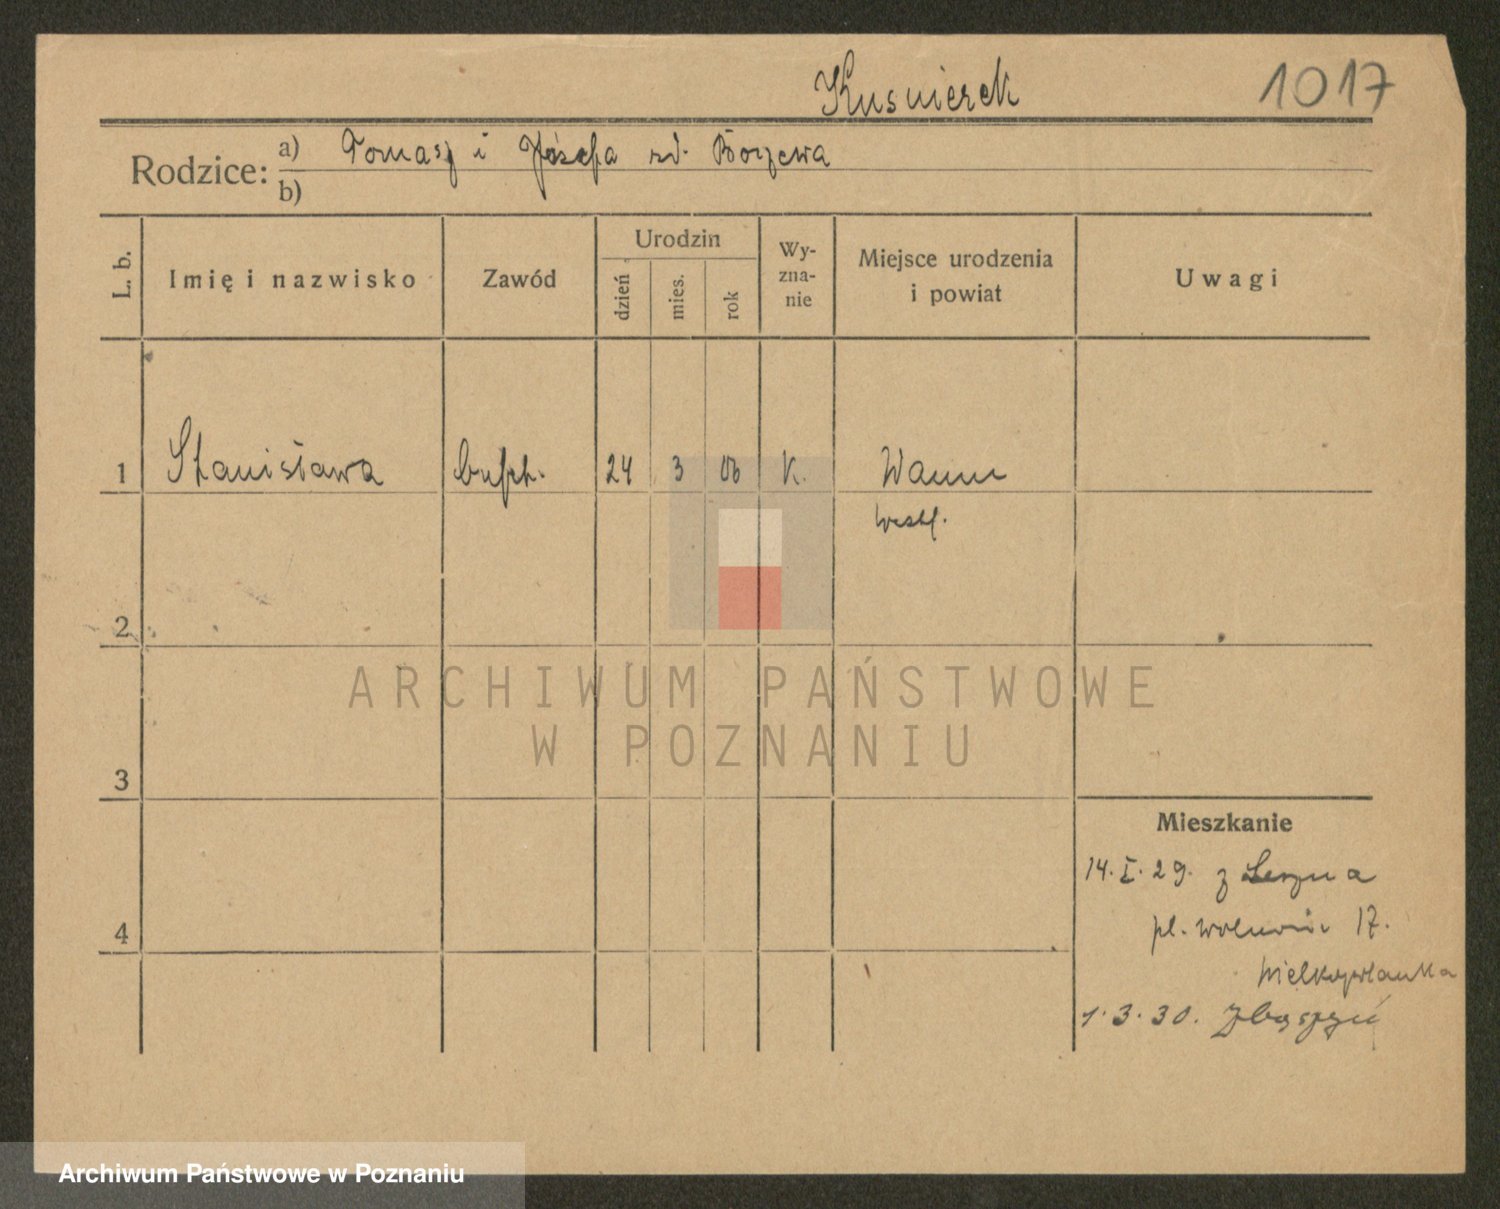 Kuśnierek 1017
Rodzice: a) Tomasz i Józefa zd. Borzewa
b)
L. b. Imię i nazwisko Zawód Urodzin dzień mies. rok Wy-zna-nie Miejsce urodzenia i powiat Uwagi
1 Stanisława 24 3 06 K. Wanne
westf.
2
ARCHIWUM PAŃSTWOWE
W POZNANIU
3
Mieszkanie
14.I.29. z Leszna
4 pl. Wolności 17.
Wielkopolanka
1.3.30. Zbąszyń
Archiwum Państwowe w Poznaniu